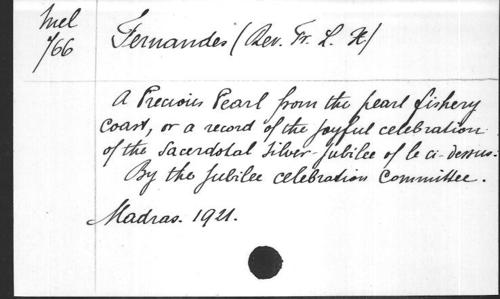 Mel
766
Fernandes (Rev. Fr. L. X)
A Precious Pearl from the pearl fishery
Coast, or a record of the joyful celebration
of the Sacerdotal Silver-Jubilee of le ci-dessus.
By the Jubilee celebration Committee.
Madras. 1921.